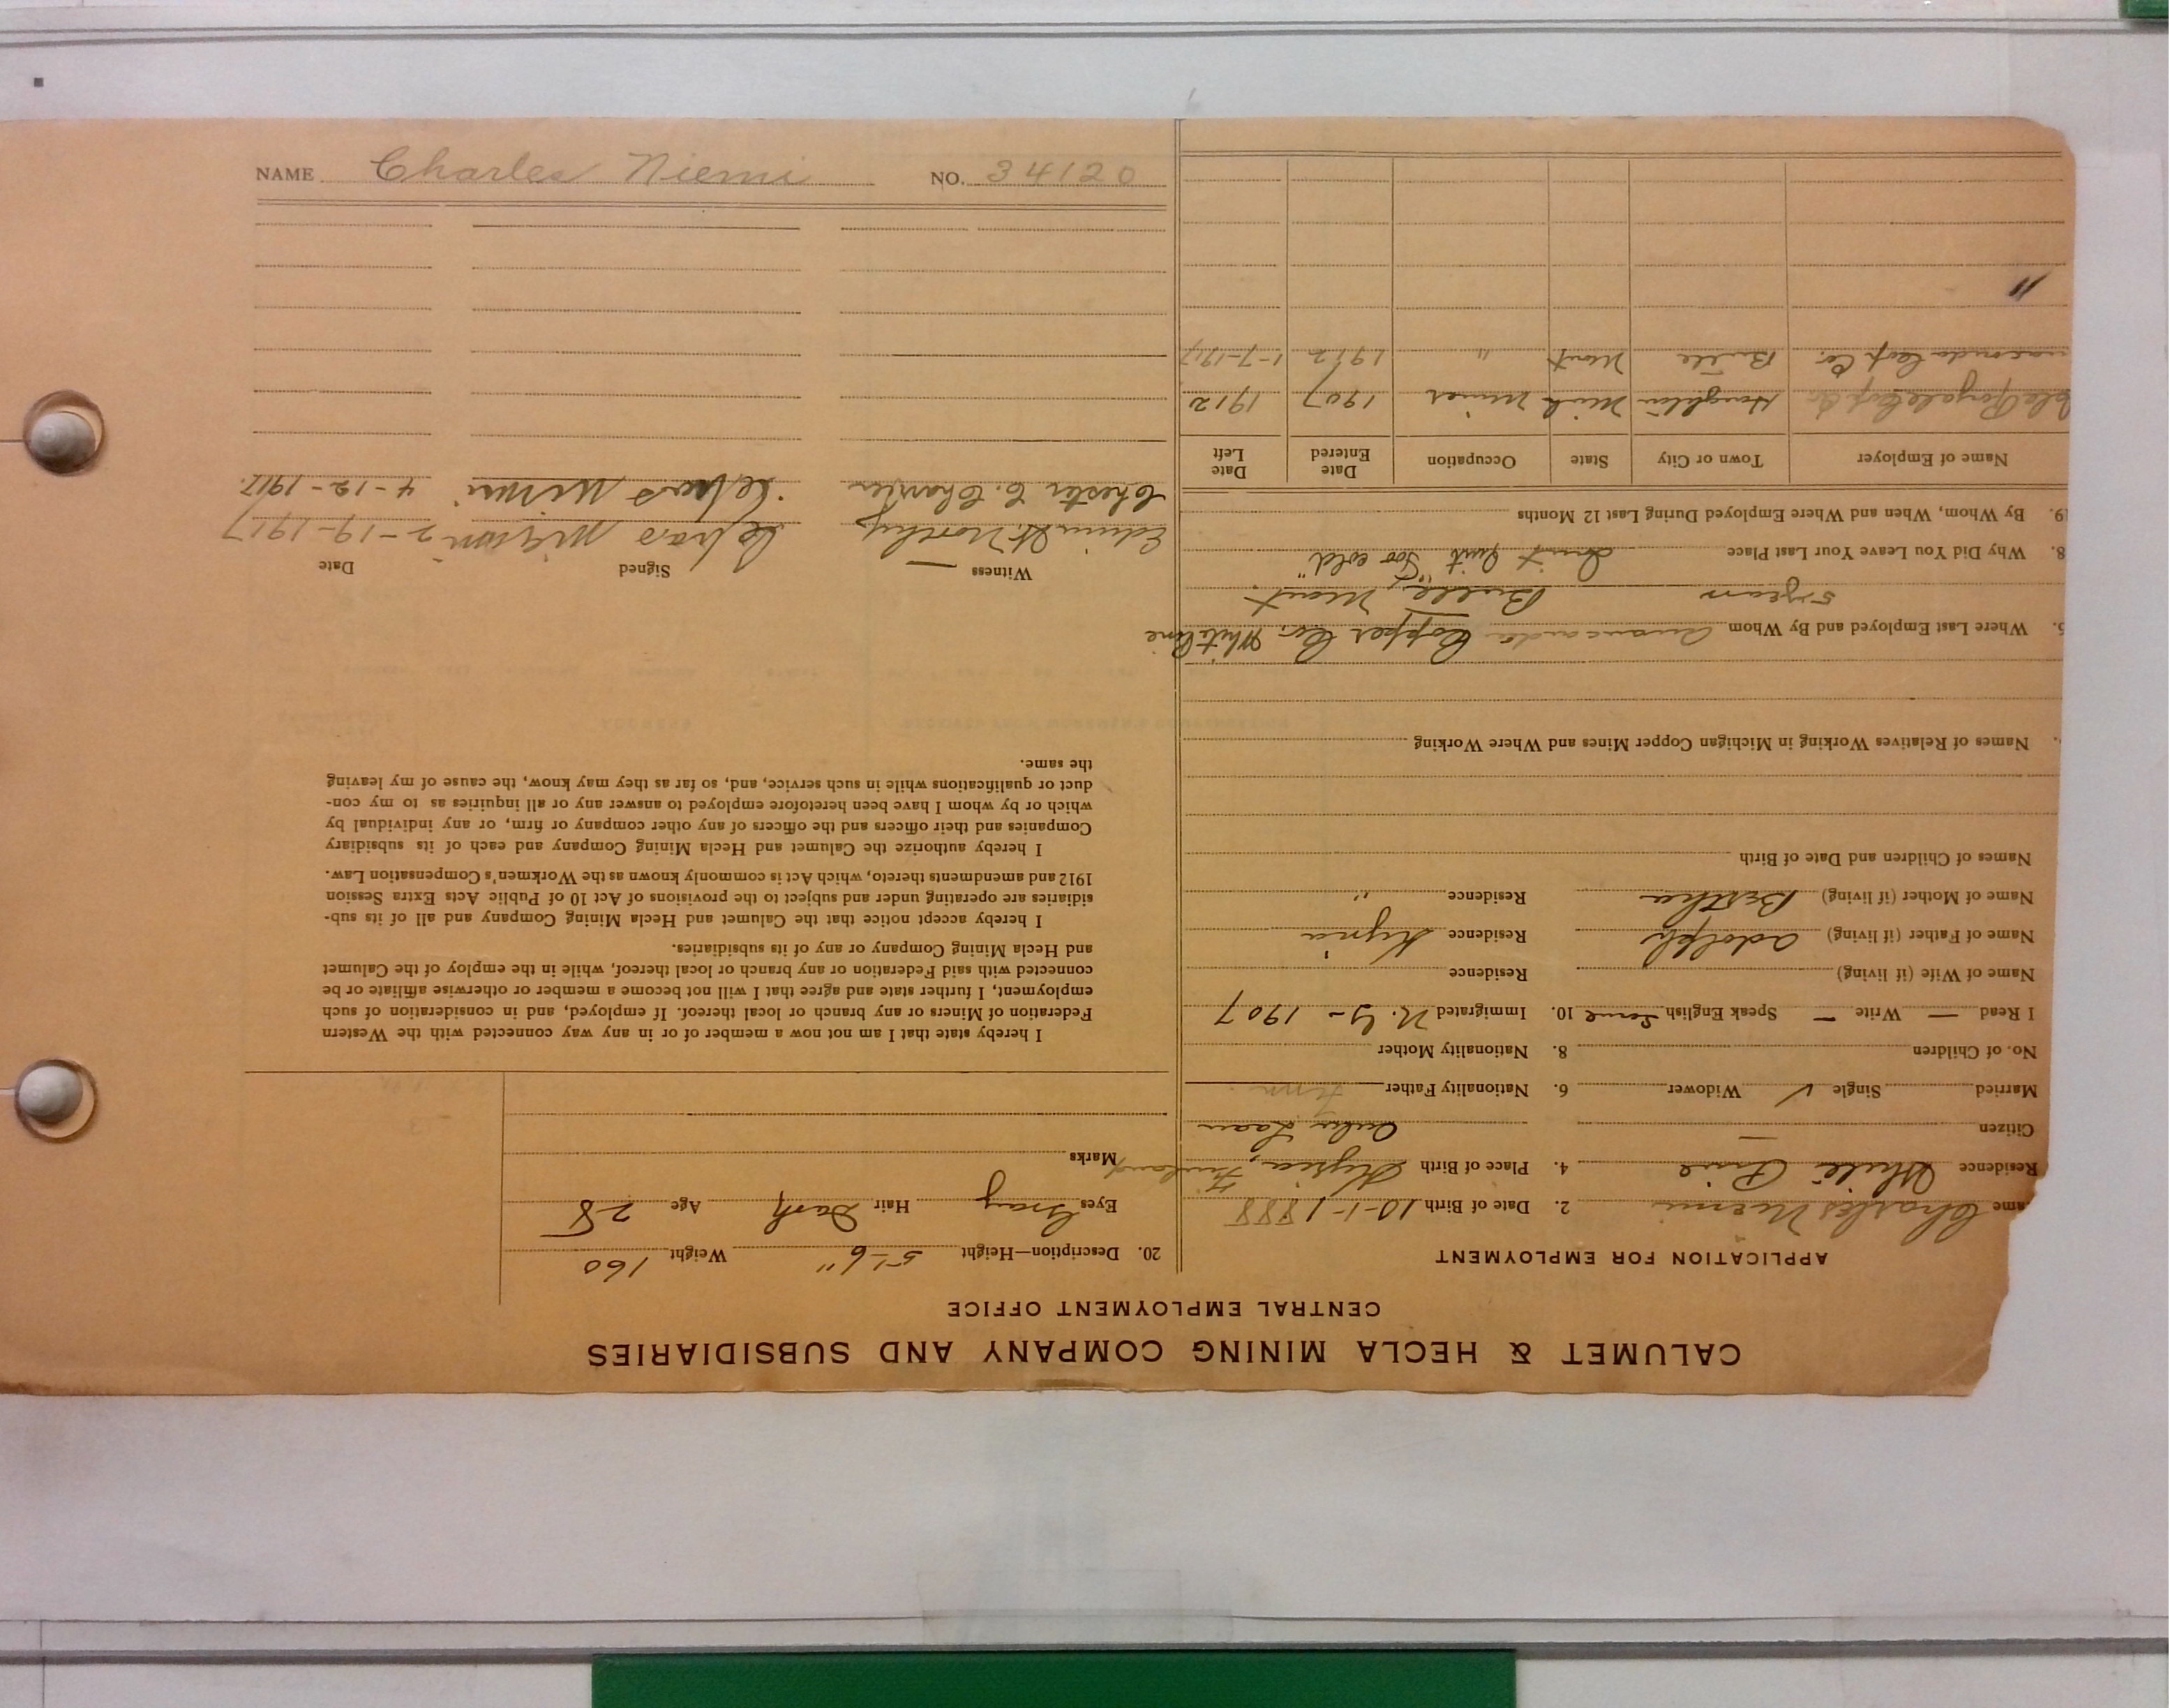 NAME Charles Niemi NO. 34120
CALUMET & HECLA MINING COMPANY AND SUBSIDIARIES
CENTRAL EMPLOYMENT OFFICE
APPLICATION FOR EMPLOYMENT
ame Charles Niemi 2. Date of Birth 10-1-1888
Residence White Pine 4. Place of Birth Kyria, Finland
Citizen — Oulu Laani
Married Single ✓ Widower 6. Nationality Father Finn
No. of Children 8. Nationality Mother
I Read — Write — Speak English Some 10. Immigrated N.Y - 1907
Name of Wife (if living) Residence
Name of Father (if living) Adolph Residence Kyria
Name of Mother (if living) Bertha Residence "
Names of Children and Date of Birth
Names of Relatives Working in Michigan Copper Mines and Where Working
Where Last Employed and By Whom Anaconda Copper Co. White Pine
5 years Butte, Mont.
8. Why Did You Leave Your Last Place Quit "Too cold"
19. By Whom, When and Where Employed During Last 12 Months
Name of Employer Town or City State Occupation Date Entered Date Left
Isle Royale Cop Co Houghton Mich Miner 1907 1912
naconda Cop Co. Butte Mont " 1912 1-7-1917
"
20. Description—Height 5-6" Weight 160
Eyes Gray Hair Dark Age 28
Marks
I hereby state that I am not now a member of or in any way connected with the Western
Federation of Miners or any branch or local thereof. If employed, and in consideration of such
employment, I further state and agree that I will not become a member or otherwise affiliate or be
connected with said Federation or any branch or local thereof, while in the employ of the Calumet
and Hecla Mining Company or any of its subsidiaries.
I hereby accept notice that the Calumet and Hecla Mining Company and all of its sub-
sidiaries are operating under and subject to the provisions of Act 10 of Public Acts Extra Session
1912 and amendments thereto, which Act is commonly known as the Workmen's Compensation Law.
I hereby authorize the Calumet and Hecla Mining Company and each of its subsidiary
Companies and their officers and the officers of any other company or firm, or any individual by
which or by whom I have been heretofore employed to answer any or all inquiries as to my con-
duct or qualifications while in such service, and, so far as they may know, the cause of my leaving
the same.
Witness Signed Date
Edwin H. 2-19-1917
Chester C. 4-12-1917.